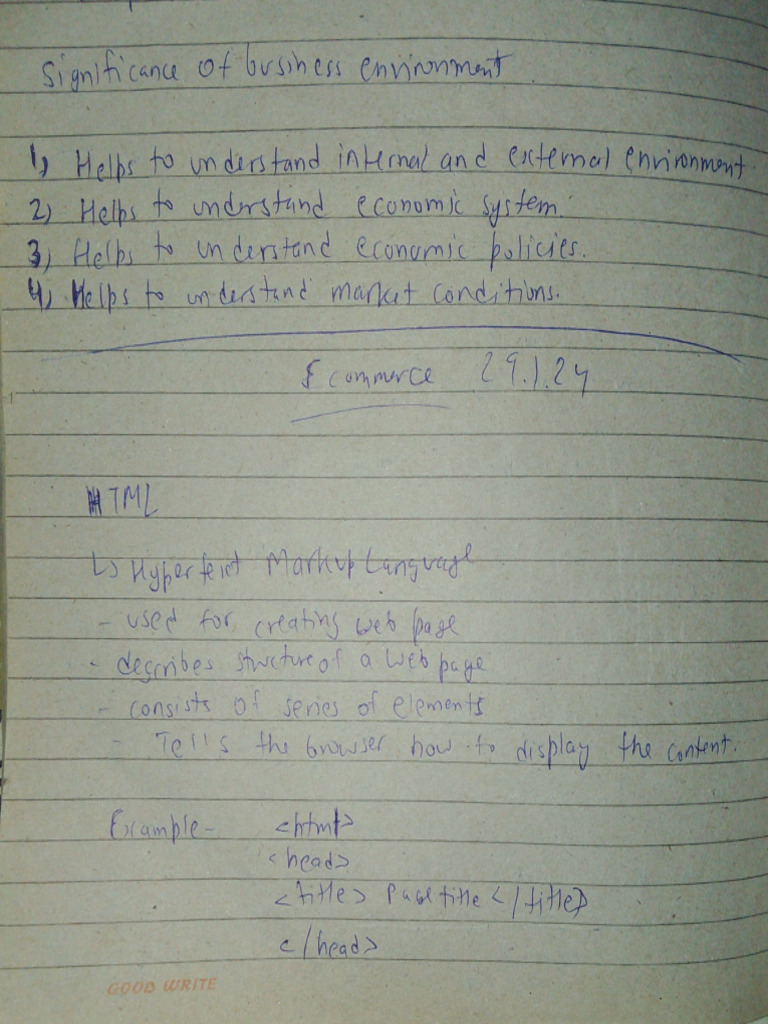 Significance of business environment
1) Helps to understand internal and external environment.
2) Helps to understand economic system.
3) Helps to understand economic policies.
4) Helps to understand market conditions.
Ecommerce 29.1.24
HTML
↳ Hypertext Markup Language
- used for creating web page
- describes structure of a web page
- consists of series of elements
- Tells the browser how to display the content.
Example - <html>
<head>
<title> Page title </title>
</head>
GOOD WRITE